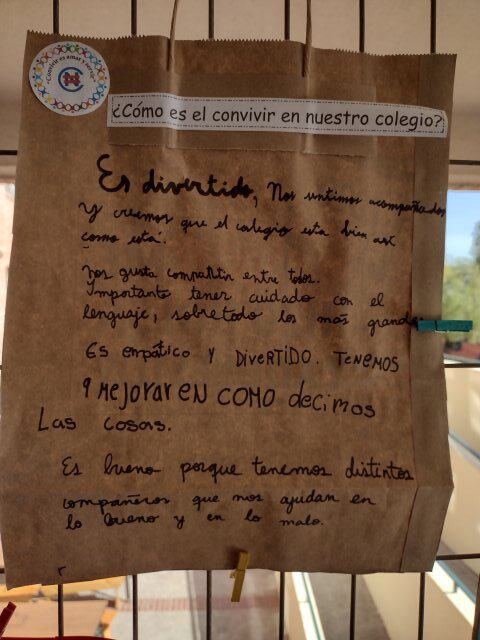 Convivir es amar y servir
¿Cómo es el convivir en nuestro colegio?
Es divertido, Nos sntimos acompañados
Y creemos que el colegio esta bien asi
como está.
nos gusta compartir entre todos.
Importante tener cuidado con el
lenguaje, sobretodo los más grandes
Es empático Y DiveRTiDO. TeNEMOS
q MeJorar EN COMO decimos
Las cosas.
Es bueno porque tenemos distintos
compañeros que nos ayudan en
lo bueno y en lo malo.